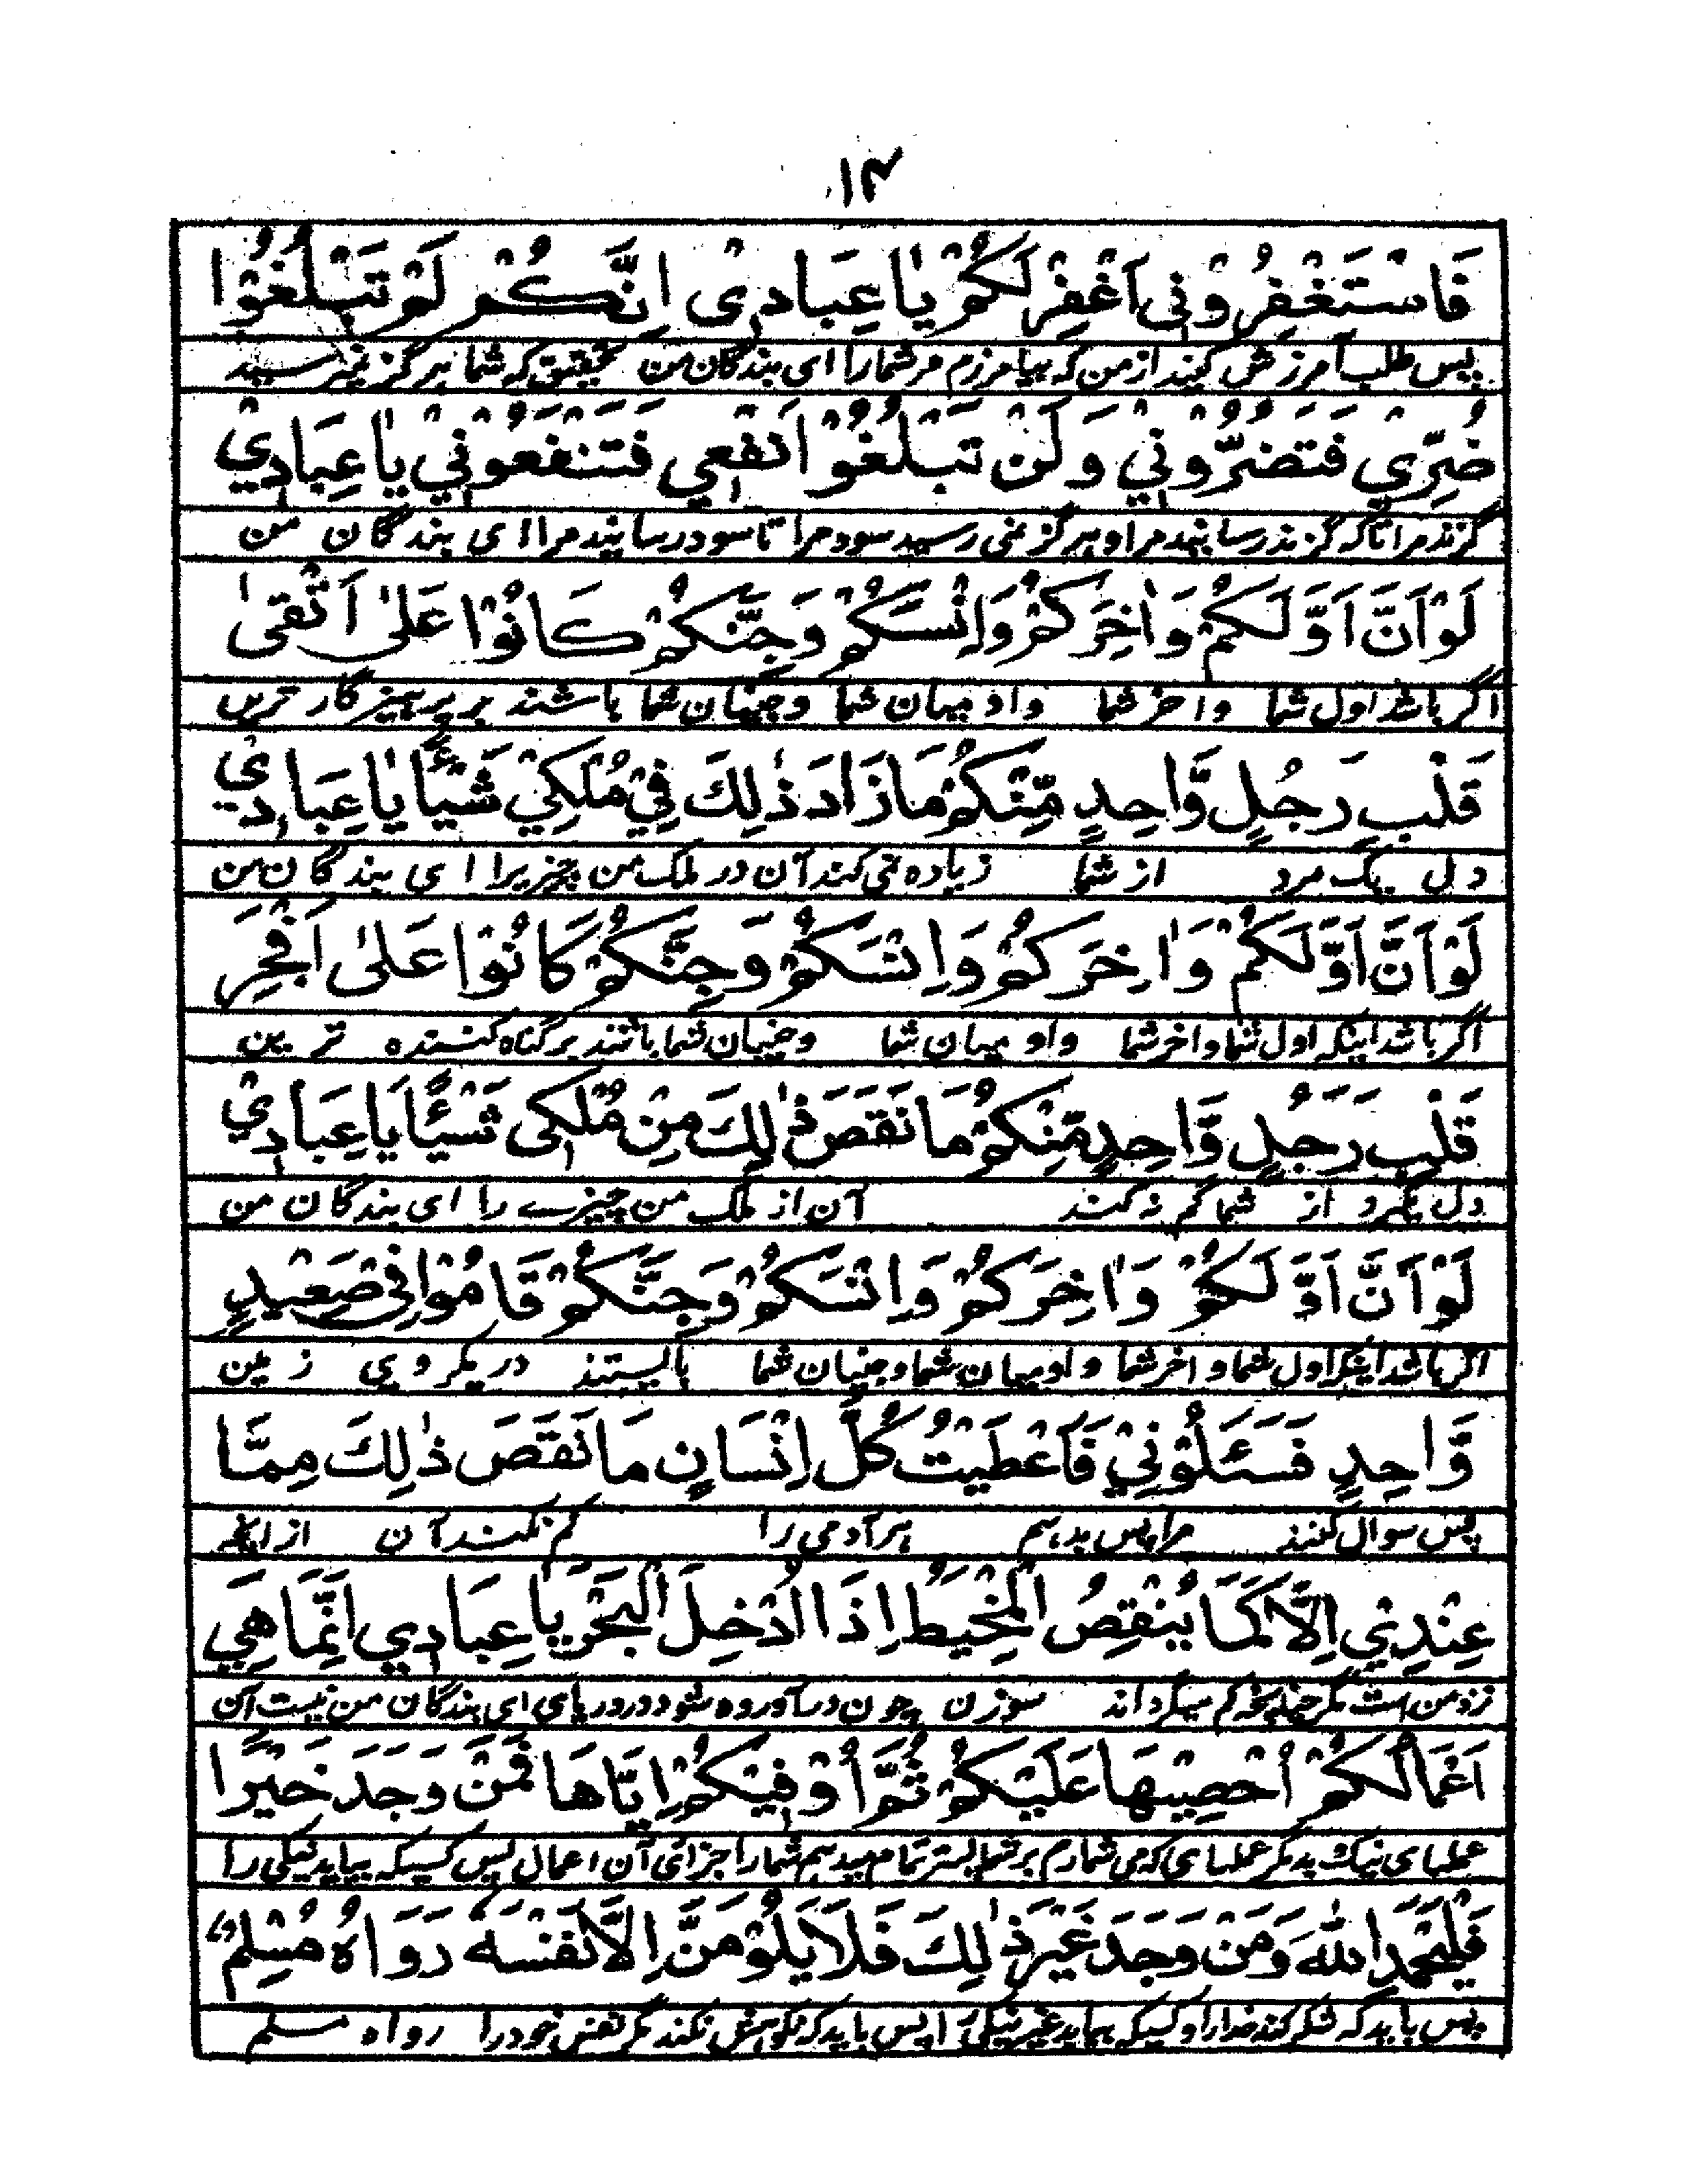 ١٣
فَاسْتَغْفِرُوْنِي اَغْفِرْ لَكُمْ يَا عِبَادِىْ اِنَّكُمْ لَوْ تَبْلُغُوْا
پس طلب آمرزش کنید از من که بیامرزم مر شما را ای بندگان من بتحقیق که شما هرگز نمیرسید
ضُرِّيْ فَتَضُرُّوْنِيْ وَ لَنْ تَبْلُغُوْا نَفْعِي فَتَنْفَعُوْنِيْ يَا عِبَادِيْ
گزند مرا تا که گزند رسانید مرا و هرگز نمی رسید سود مرا تا سود رسانید مرا ای بندگان من
لَوْ اَنَّ اَوَّلَكُمْ وَ اٰخِرَكُمْ وَ اِنْسَكُمْ وَ جِنَّكُمْ كَانُوْا عَلىٰ اَتْقىٰ
اگر باشد اول شما و اخر شما و ادمیان شما و جنیان شما باشند بر پرهیزگار ترین
قَلْبِ رَجُلٍ وَّاحِدٍ مِّنْكُمْ مَا زَادَ ذٰلِكَ فِيْ مُلْكِيْ شَيْئًا يَا عِبَادِيْ
دل یک مرد از شما زیاده نمی کند آن در ملک من چیزیرا ای بندگان من
لَوْ اَنَّ اَوَّلَكُمْ وَ اٰخِرَكُمْ وَ اِنْسَكُمْ وَ جِنَّكُمْ كَانُوْا عَلىٰ اَفْجَرِ
اگر باشد اینکه اول شما و اخر شما و ادمیان شما و جنیان شما باشند بر گناه کننده ترین
قَلْبِ رَجُلٍ وَّاحِدٍ مِّنْكُمْ مَا نَقَصَ ذٰلِكَ مِنْ مُلْكِى شَيْئًا يَا عِبَادِيْ
دل یکمرد از شما کم نکند آن از ملک من چیزے را ای بندگان من
لَوْ اَنَّ اَوَّلَكُمْ وَ اٰخِرَكُمْ وَ اِنْسَكُمْ وَ جِنَّكُمْ قَامُوْا فِى صَعِيْدٍ
اگر باشد اینکه اول شما و اخر شما و ادمیان شما و جنیان شما بایستند در یکروی زمین
وَّاحِدٍ فَسَئَلُوْنِيْ فَاَعْطَيْتُ كُلَّ اِنْسَانٍ مَا نَقَصَ ذٰلِكَ مِمَّا
پس سوال کنند مرا پس بدهم هر آدمی را کم نکند آن از انچه
عِنْدِيْ اِلَّا كَمَا يَنْقِصُ الْمِخْيَطُ اِذَا اُدْخِلَ الْبَحْرَ يَا عِبَادِي اِنَّمَا هِيَ
نزد من است مگر چنانچه کم میگرداند سوزن چون در آورده شود در دریای ای بندگان من نیست آن
اَعْمَالُكُمْ اُحْصِيْهَا عَلَيْكُمْ ثُمَّ اُوْفِيْكُمْ اِيَّاهَا فَمَنْ وَجَدَ خَيْرًا
عملهای نیک و بد مگر عملهای که می شمارم بر شما پستر تمام میدهم شما را جزای آن اعمال پس کسیکه بیابد نیکی را
فَلْيَحْمَدِ اللهَ وَ مَنْ وَجَدَ غَيْرَ ذٰلِكَ فَلَا يَلُوْمَنَّ اِلَّا نَفْسَهٗ رَوَاهُ مُسْلِمٌ
پس باید که شکر کند خدا را و کسیکه بیابد غیر نیکی را پس باید که نکوهش نکند مگر نفس خود را رواه مسلم